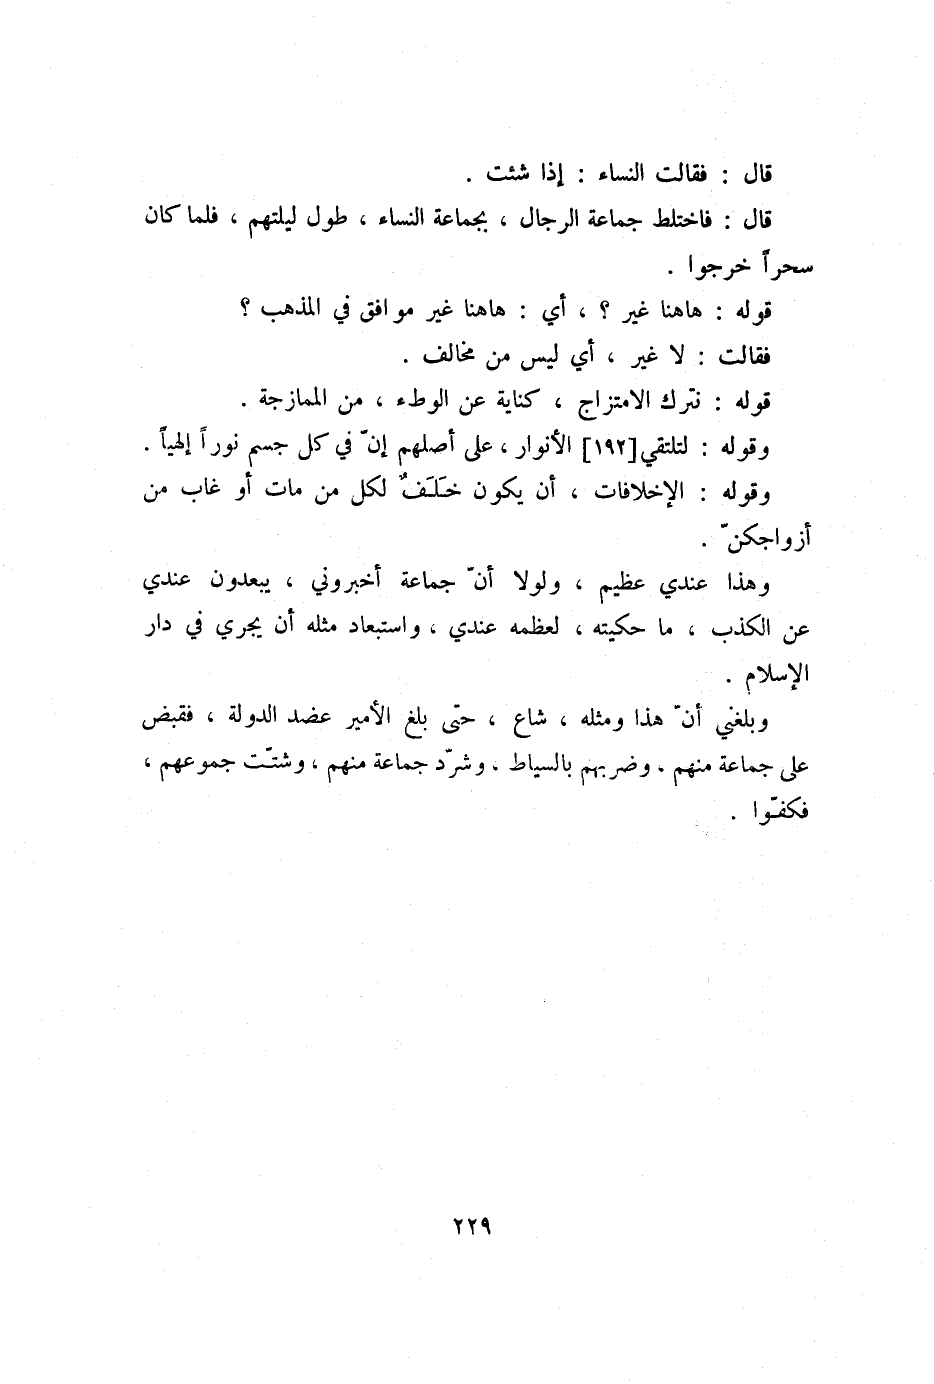 قال : فقالت النساء : إذا شئت .
قال : فاختلط جماعة الرجال ، بجماعة النساء ، طول ليلتهم ، فلما كان
سحراً خرجوا .
قوله : هاهنا غير ؟ ، أي : هاهنا غير موافق في المذهب ؟
فقالت : لا غير ، أي ليس من مخالف .
قوله : نترك الامتزاج ، كناية عن الوطء ، من الممازجة .
وقوله : لتلتقي [١٩٢] الأنوار ، على أصلهم إنّ في كل جسم نوراً إلهياً .
وقوله : الإخلافات ، أن يكون خَلَفٌ لكل من مات أو غاب من
أزواجكنّ .
وهذا عندي عظيم ، ولولا أنّ جماعة أخبروني ، يبعدون عندي
عن الكذب ، ما حكيته ، لعظمه عندي ، واستبعاد مثله أن يجري في دار
الإسلام .
وبلغني أنّ هذا ومثله ، شاع ، حتّى بلغ الأمير عضد الدولة ، فقبض
على جماعة منهم ، وضربهم بالسياط ، وشرّد جماعة منهم ، وشتّت جموعهم ،
فكفّوا .
٢٢٩